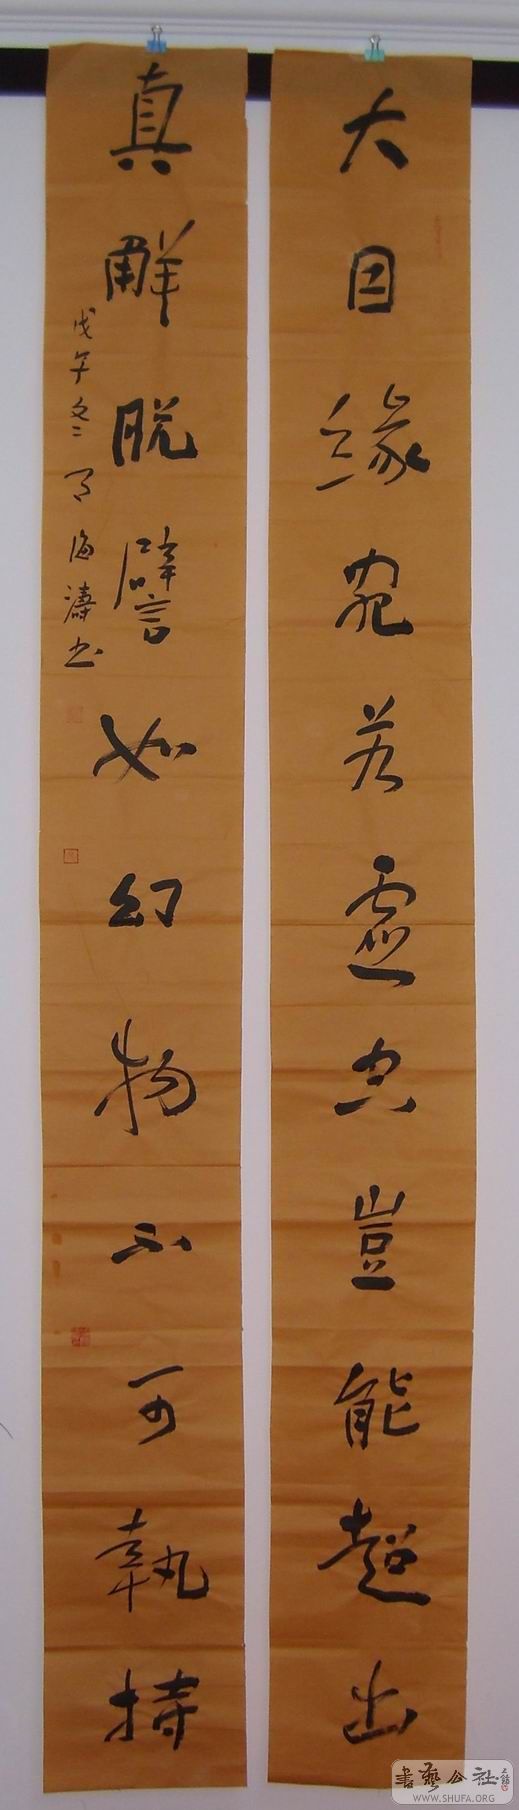 大因緣宛若虛空豈能超出
真解脫譬如幻物不可執持
戊午冬月海濤书
書藝公社
WWW.SHUFA.ORG